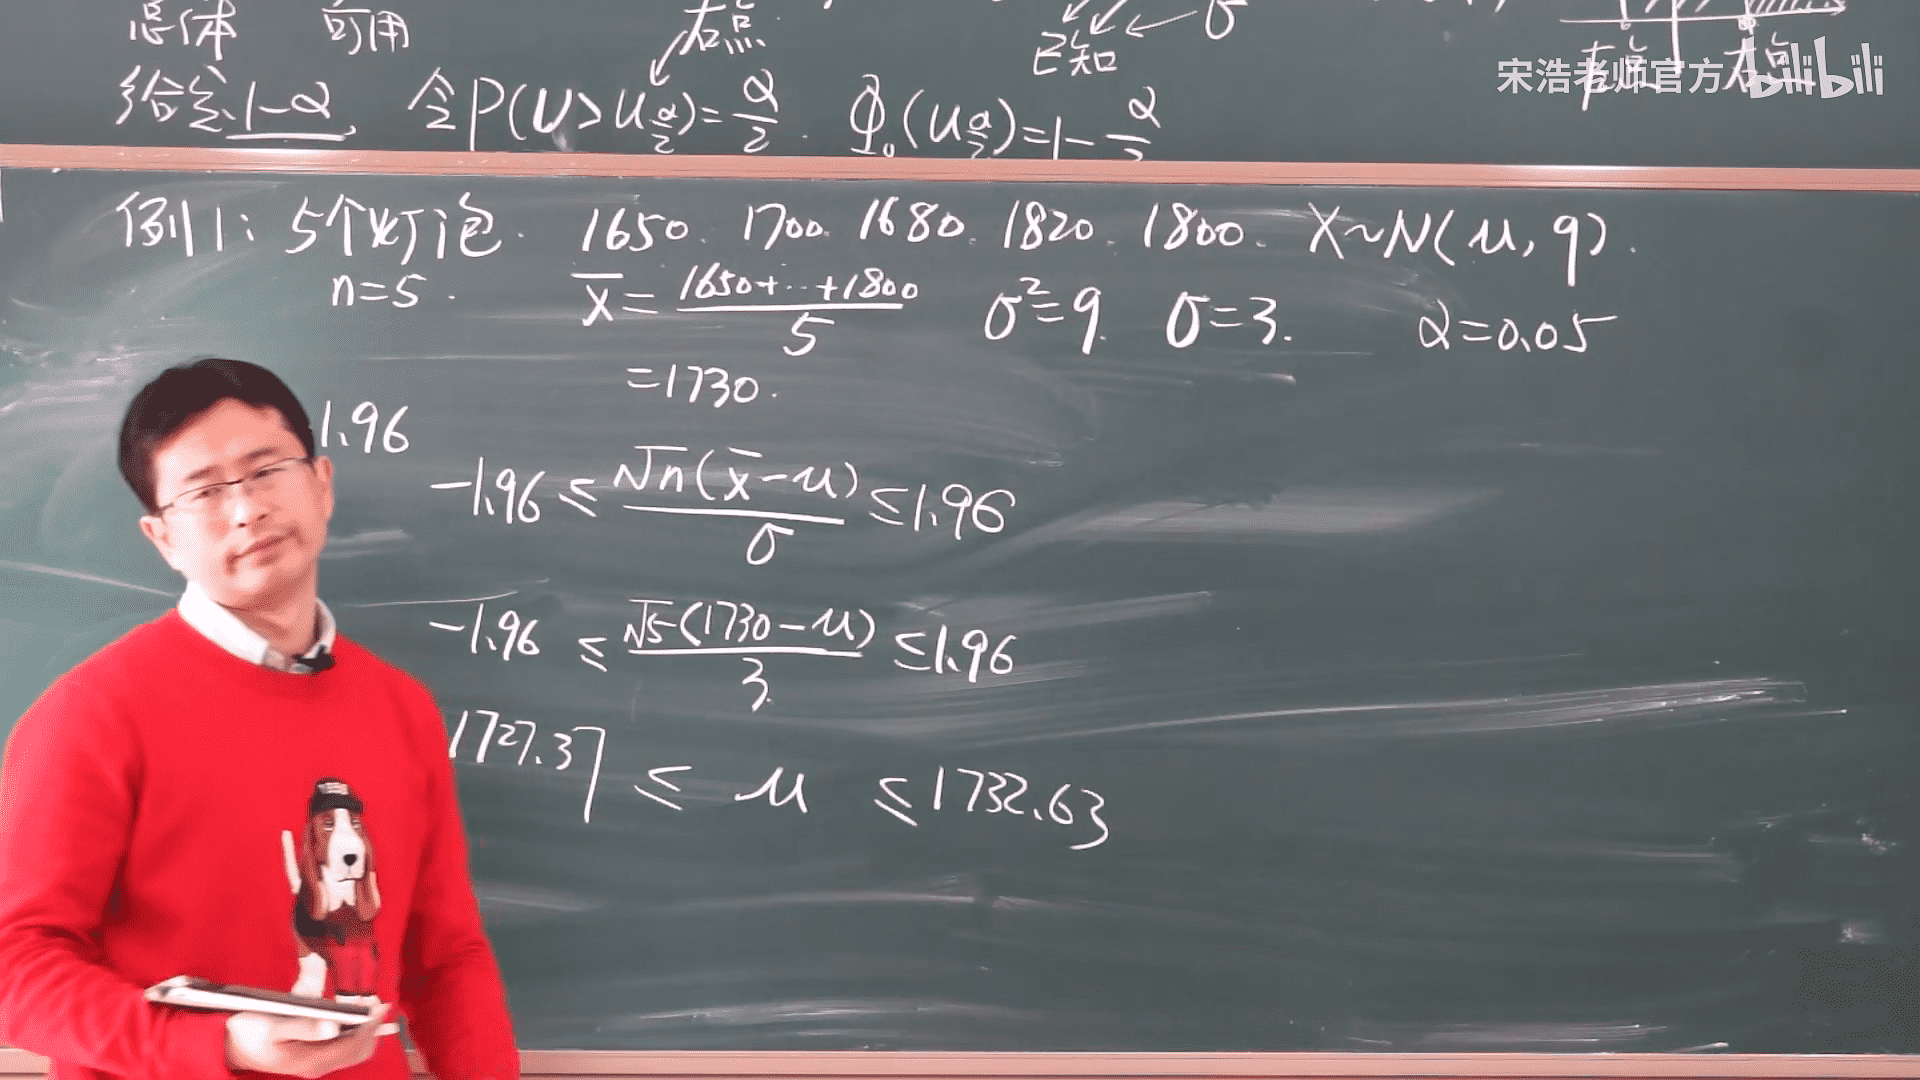 总体 可用 右点 已知 σ
宋浩老师官方 bilibili
给定 1-α, 令P(U>u_{α/2})=α/2. Φ₀(u_{α/2})=1-α/2
例1: 5个灯泡. 1650. 1700. 1680. 1820. 1800. X~N(μ, 9).
n=5. x̄=(1650+…+1800)/5 σ²=9. σ=3. α=0.05
=1730.
1.96
-1.96≤√n(x̄-μ)/σ≤1.96
-1.96≤√5(1730-μ)/3≤1.96
1727.37≤μ≤1732.63